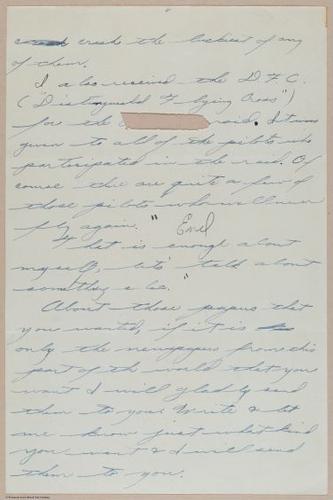 crash the luckiest of any
of them.
I also received the D.F.C.
("Distinguished Flying Cross")
for the raid. It was
given to all of the pilots who
participated in the raid. Of
course there are quite a few of
those pilots who will never
fly again." End
"That is enough about
myself, let's talk about
something else."
About those papers that
you wanted, if it is
only the newspapers from this
part of the world that you
want I will gladly send
them to you. Write & let
me know just what kind
you want & I will send
them to you.